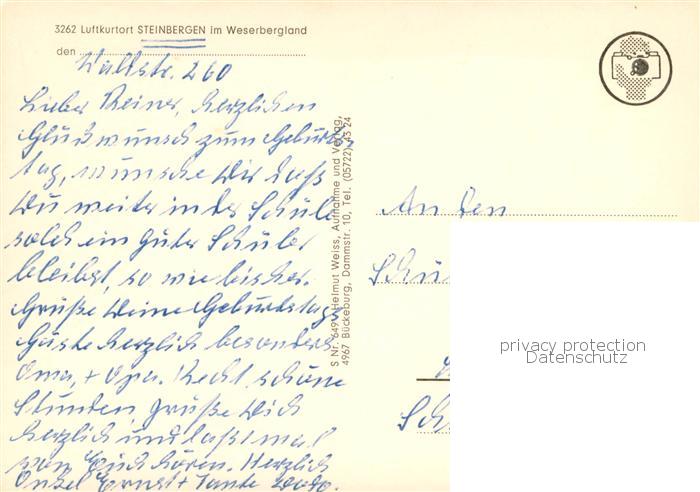 3262 Luftkurort STEINBERGEN im Weserbergland
den
Waldstr. 260
Lieber Reiner, herzlichen
Glückwunsch zum Geburts
tag, wünsche Dir daß
Du weiter in der Schule
solch ein guter Schüler
bleibst, so wie bisher.
Grüße Deine Geburtstags
Gäste herzlich besonders
Oma, + Opa. Recht schöne
Stunden grüße Dich
herzlich und laßt mal
von Euch hören. Herzlich
Onkel Ernst + Tante
S Nr. 6499 Helmut Weiss, Aufnahme und Verlag,
4967 Bückeburg, Dammstr. 10, Tel. (05722) 45 24
An den
Schü
Sch
privacy protection
Datenschutz